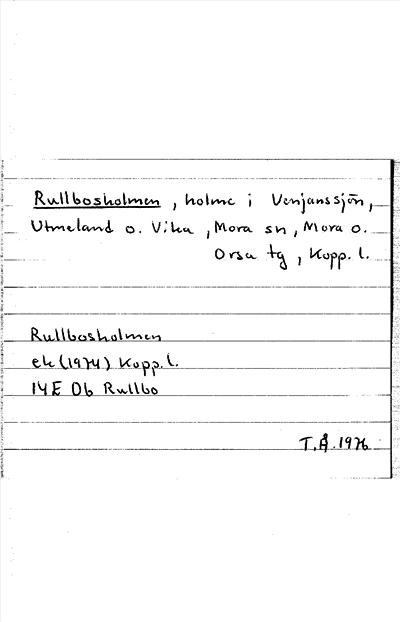 Rullbosholmen, holme i Venjanssjön,
Utmeland o. Vika, Mora sn, Mora o.
Orsa tg, Kopp. l.
Rullbosholmen
ek (1974) Kopp. l.
14E 0b Rullbo
T.Å. 1976